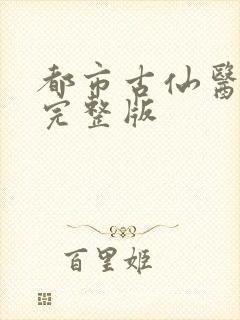 都市古仙醫
完整版
百里姬